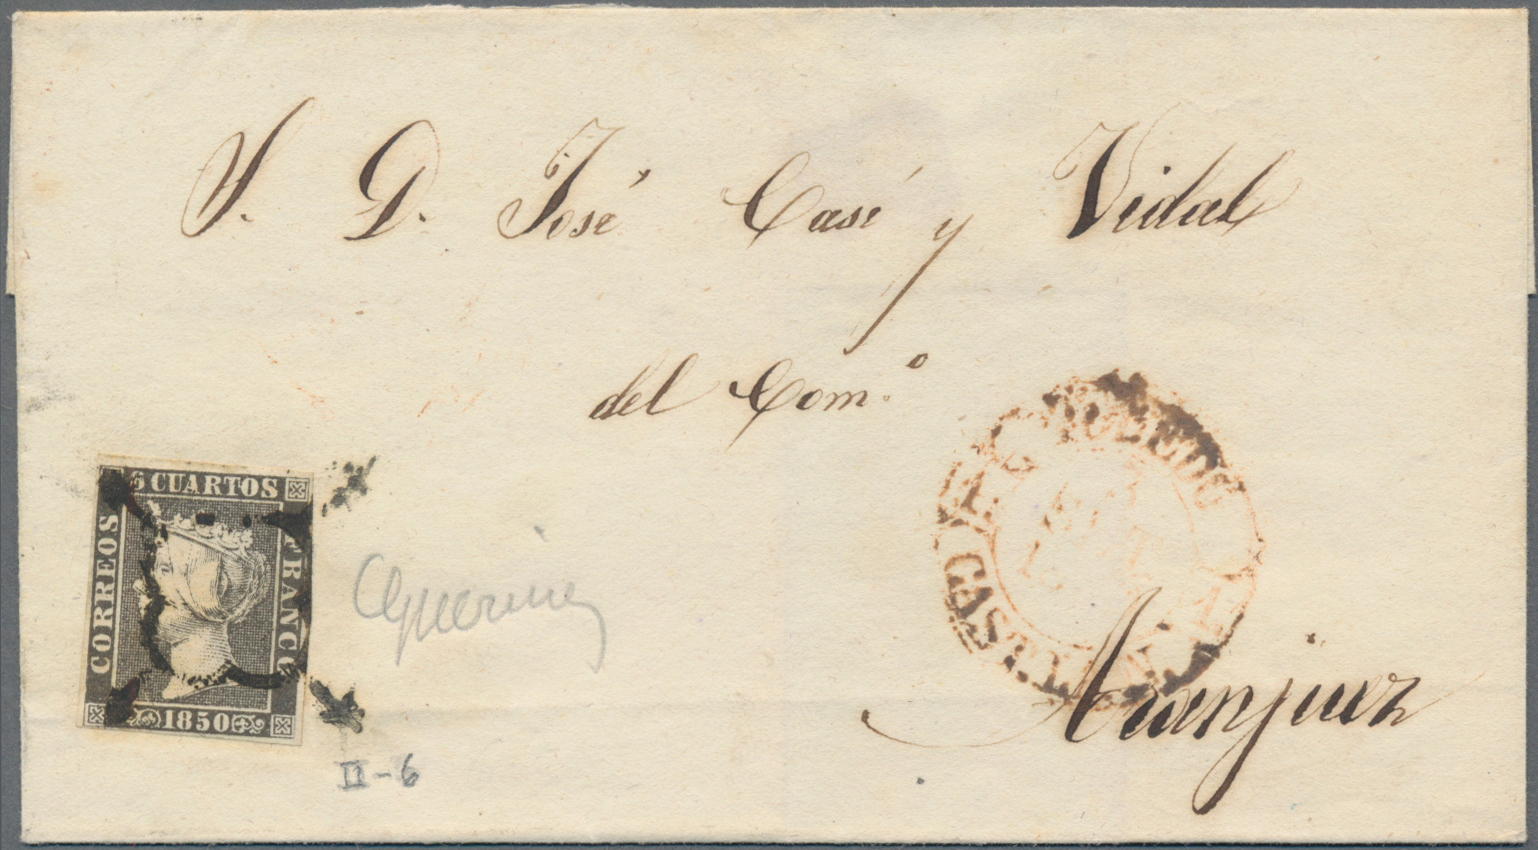 S. D. José Casi y Vidal
del Com.º
Aranjuez
6 CUARTOS
CORREOS
FRANCO
1850
TOLEDO
CAST
II-6